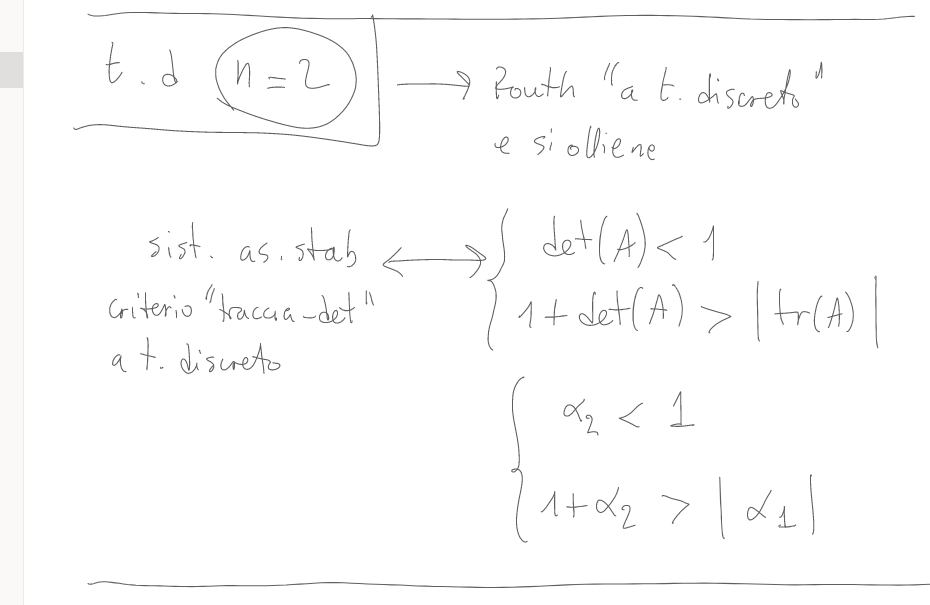 t.d n=2 → Routh "a t. discreto"
e si ottiene
sist. as. stab ↔ { det(A) < 1
criterio "traccia-det" { 1 + det(A) > |tr(A)|
a t. discreto
{ α₂ < 1
{ 1+α₂ > |α₁|